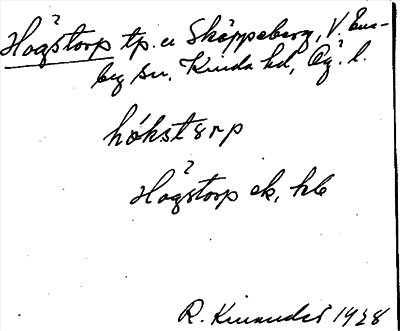 Högstorp tp. u Skäppeberg, V. Ene-
by sn, Kinda hd, Ög. l.
hókstɛrp
Högstorp ek, hb
R. Kinander 1928